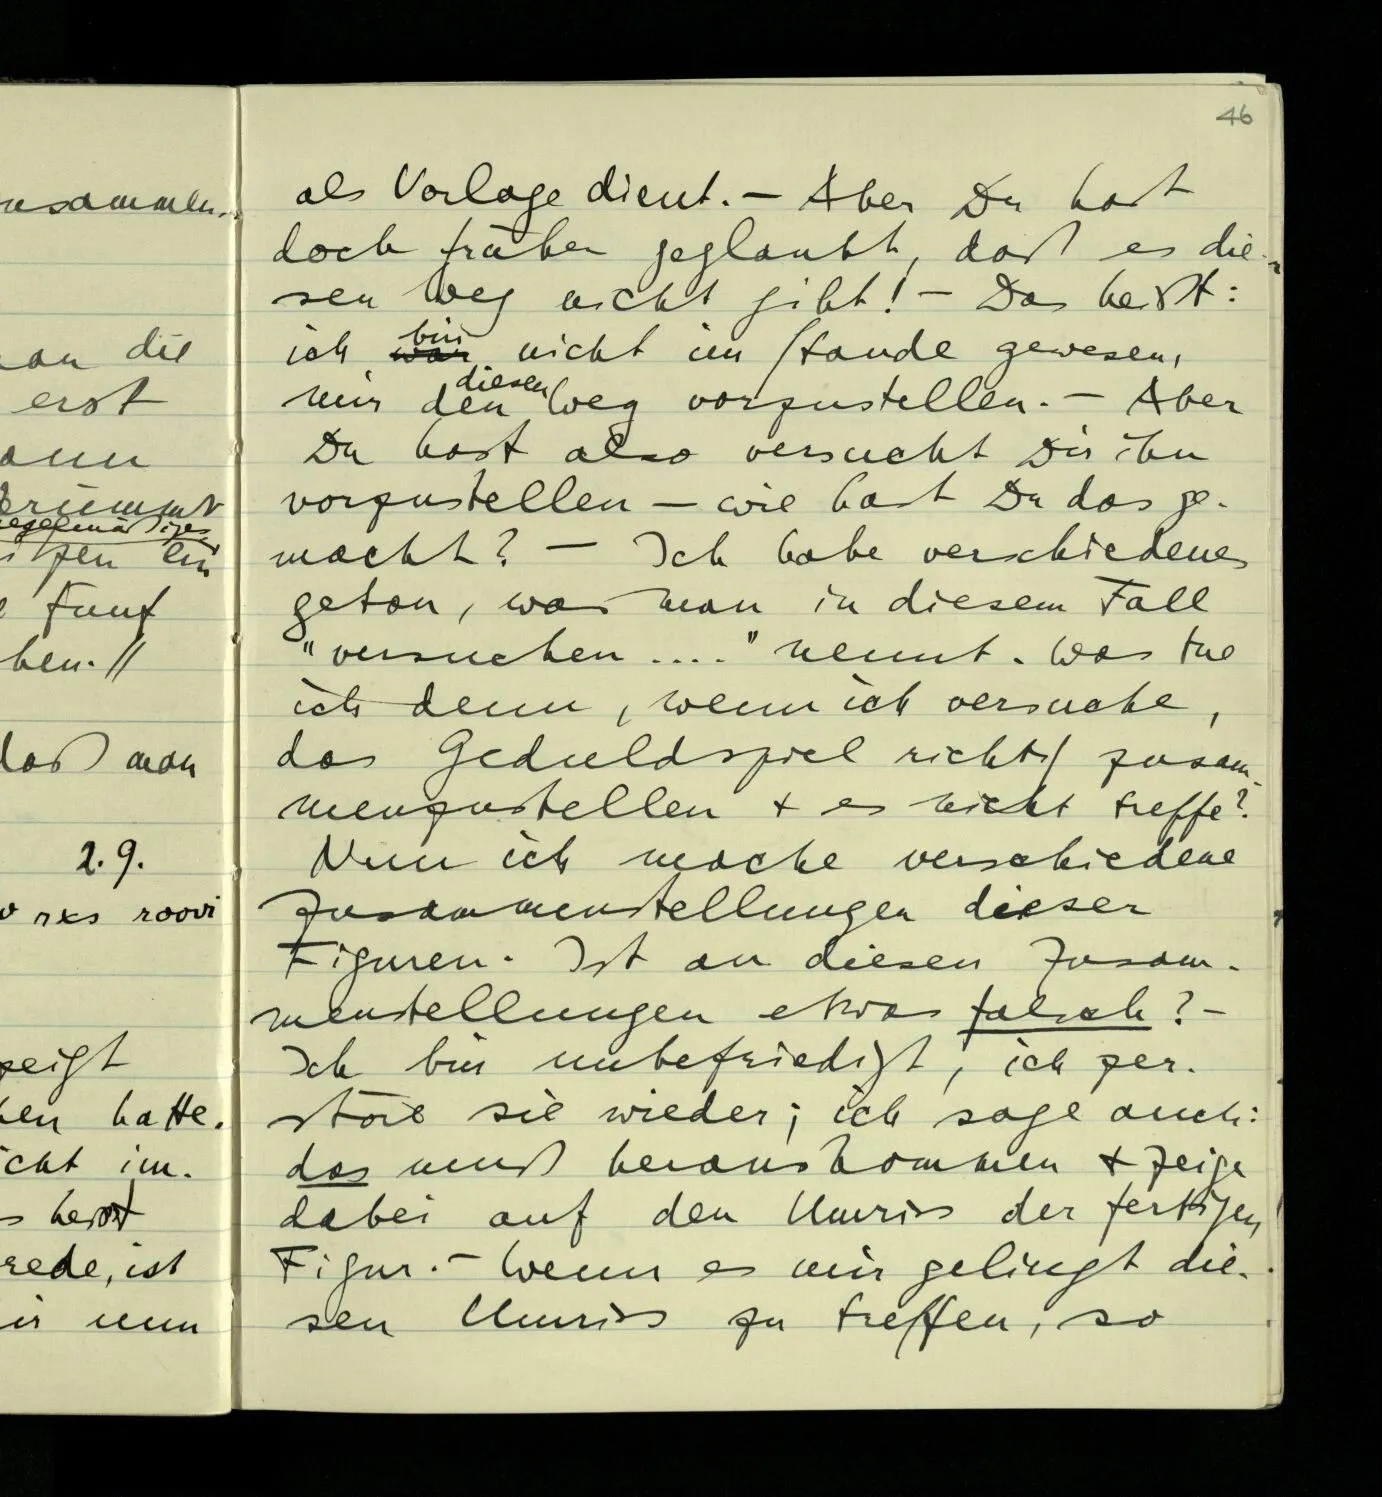 46
als Vorlage dient. – Aber Du hast
doch früher geglaubt, daß es die-
sen Weg nicht gibt! – Das heißt:
bin
ich war nicht im Stande gewesen,
diesen
mir den Weg vorzustellen. – Aber
Du hast also versucht Dir ihn
vorzustellen – wie hast Du das ge-
macht? – Ich habe verschiedenes
getan, was man in diesem Fall
"versuchen...." nennt. Was tue
ich denn, wenn ich versuche,
das Geduldspiel richtig zusam-
menzustellen + es nicht treffe?
Nun ich mache verschiedene
Zusammenstellungen dieser
Figuren. Ist an diesen Zusam-
menstellungen etwas falsch? –
Ich bin unbefriedigt, ich zer-
störe sie wieder; ich sage auch:
das muß herauskommen + zeige
dabei auf den Umriss der fertigen
Figur. – Wenn es mir gelingt die-
sen Umriss zu treffen, so
an die
erst
fünf
hen. //
daß man
2.9.
zeigt
hatte.
icht im-
heißt
rede, ist
nun